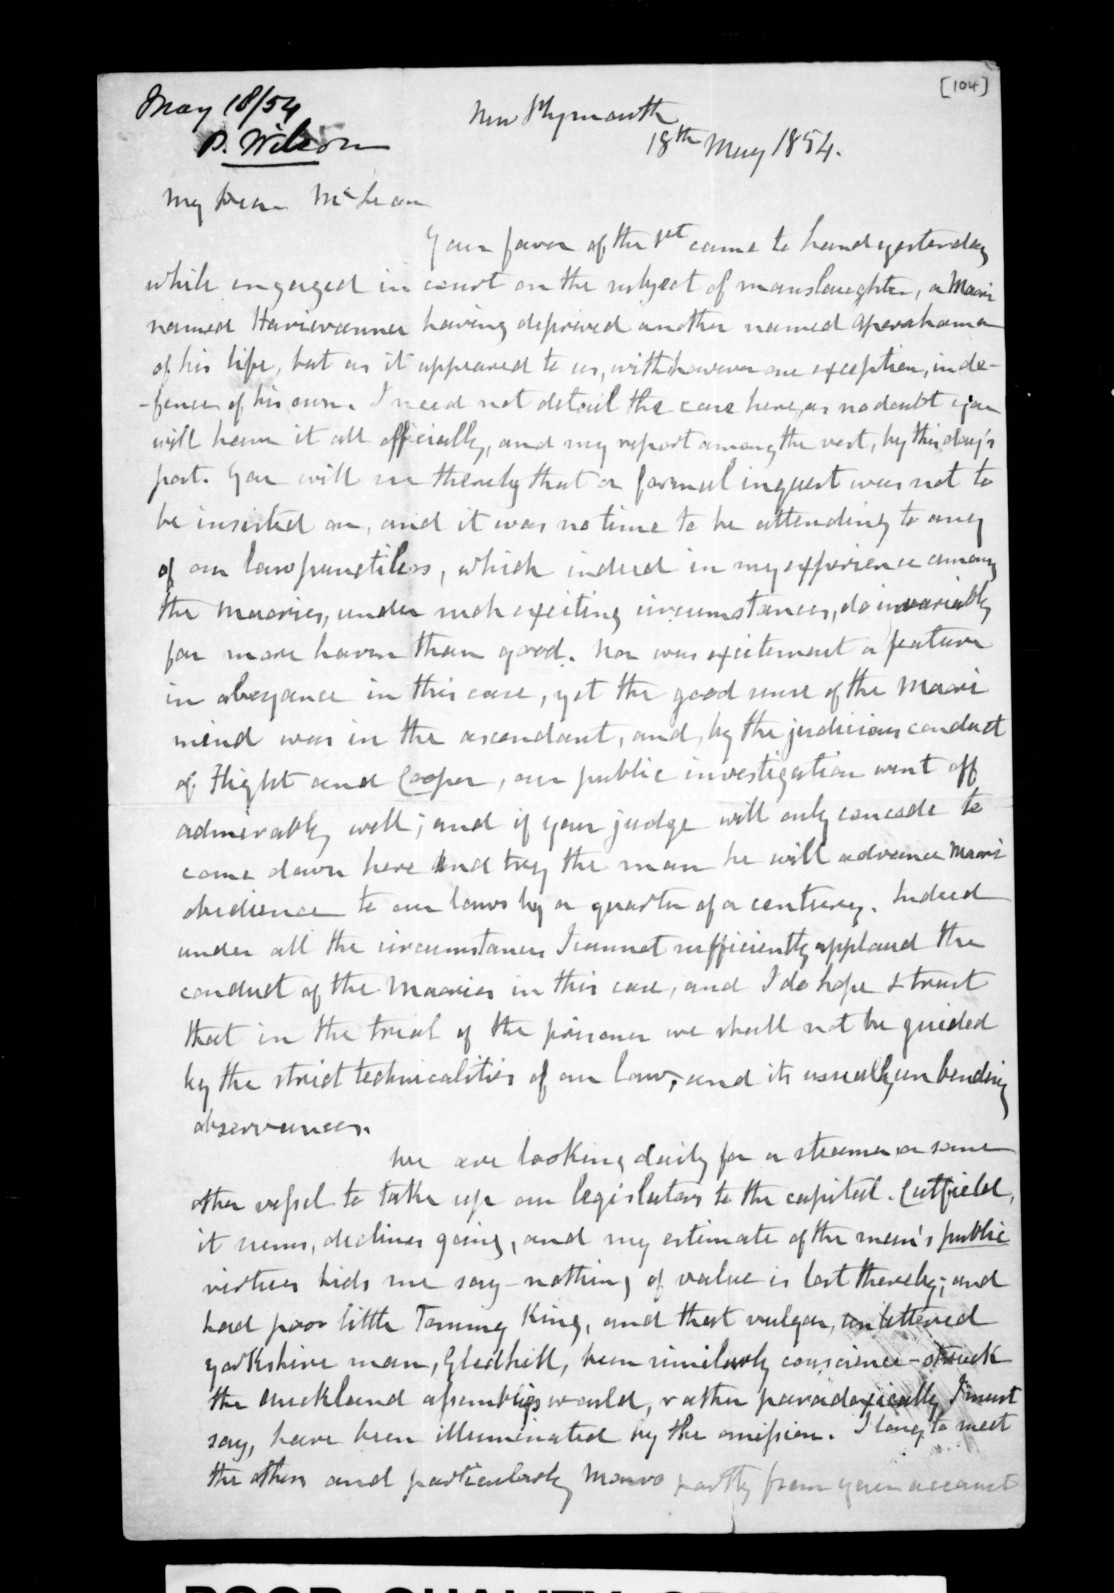 [104]
May 18/54
P. Wilson
New Plymouth
18th May 1854.
My Dear McLean
Your favor of the 1st came to hand yesterday
while engaged in court on the subject of manslaughter, a Maori
named having deprived another named Aperahama
of his life, but as it appeared to us, with however one exception, in de-
-fence of his own. I need not detail the case here, as no doubt you
will have it all officially, and my report among the rest, by this day's
post. You will see thereby that a formal inquest was not to
be insisted on, and it was no time to be attending to any
of our law punctilios, which indeed in my experience among
the Maories, under such exciting circumstances, do invariably
far more harm than good. Nor was excitement a feature
in abeyance in this case, yet the good sense of the Maori
mind was in the ascendant, and, by the judicious conduct
of Flight and Cooper, our public investigation went off
admirably well; and if your judge will only concede to
come down here and try the man he will advance Maori
obedience to our laws by a quarter of a century. Indeed
under all the circumstances I cannot sufficiently applaud the
conduct of the Maories in this case, and I do hope & trust
that in the trial of the prisoner we shall not be guided
by the strict technicalities of our law, and its usually unbending
observances.
We are looking daily for a steamer or some
other vessel to take up our legislators to the capital. Cutfield,
it seems, declines going, and my estimate of the man's public
virtues bids me say - nothing of value is lost thereby; and
had poor little Tommy King, and that vulgar, unlettered
Yorkshire man, Gledhill, been similarly conscience-struck
the Auckland assemblies would, rather paradoxically I must
say, have been illuminated by the omission. I long to meet
the others and particularly Monro partly from your account